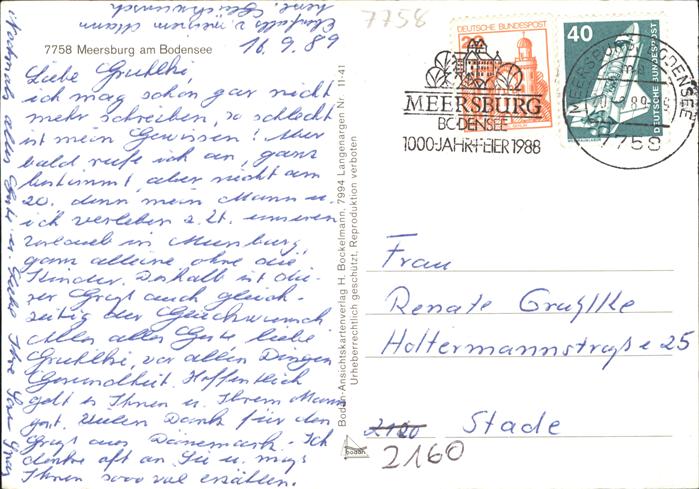 7758
Ebenfalls v. meinem Mann
herzl.
16.9.89
7758 Meersburg am Bodensee
Liebe Gruhlki,
ich mag schon gar nicht
mehr schreiben, so schlecht
ist mein Gewissen! Aber
bald rufe ich an, ganz
bestimmt, aber nicht am
20. denn mein Mann u.
ich verleben z. Zt. unseren
Urlaub in Meersburg
ganz alleine ohne die
Kinder. Deshalb ist die-
ser Gruß auch gleich-
zeitig der Glückwunsch
Alles alles Gute, liebe
Gruhlki, vor allen Dingen
Gesundheit. Hoffentlich
geht es Ihnen u. Ihrem Mann
gut. Vielen Dank für den
Gruß aus Dänemark. Ich
denke oft an Sie u. mag
Ihnen sooo viel erzählen.
Nochmals alles Gute u. Liebe Ihre
Bodan-Ansichtskartenverlag H. Bockelmann, 7994 Langenargen Nr. 11-41
Urheberrechtlich geschützt, Reproduktion verboten
bodan
DEUTSCHE BUNDESPOST
20
BERLIN
40
DEUTSCHE BUNDESPOST
MEERSBURG
BODENSEE
1000-JAHR-FEIER 1988
MEERSBURG, BODENSEE
7758
Frau
Renate Gruhlke
Holtermannstraße 25
2120 Stade
2160